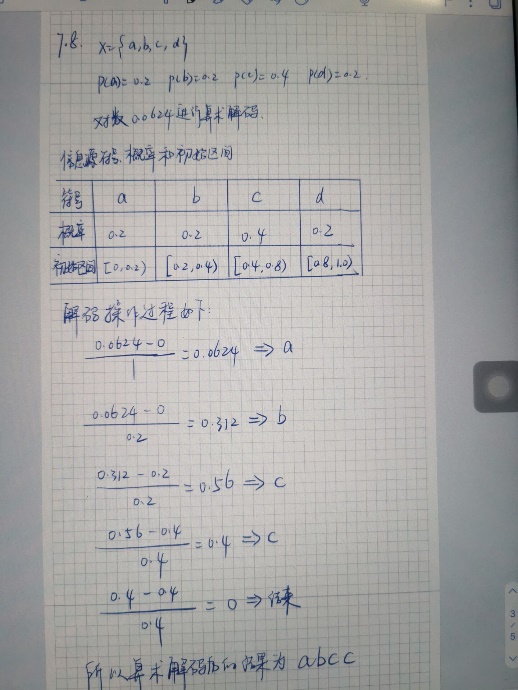 7.8. X={a,b,c,d}
p(a)=0.2 p(b)=0.2 p(c)=0.4 p(d)=0.2.
对数0.0624进行算术解码.
信息源符号、概率和初始区间
符号 a b c d
概率 0.2 0.2 0.4 0.2
初始区间 [0,0.2) [0.2,0.4) [0.4,0.8) [0.8,1.0)
解码操作过程如下:
0.0624-0 / 1 = 0.0624 ⇒ a
0.0624-0 / 0.2 = 0.312 ⇒ b
0.312-0.2 / 0.2 = 0.56 ⇒ c
0.56-0.4 / 0.4 = 0.4 ⇒ c
0.4-0.4 / 0.4 = 0 ⇒ 结束
所以算术解码后的结果为 abcc
3
5